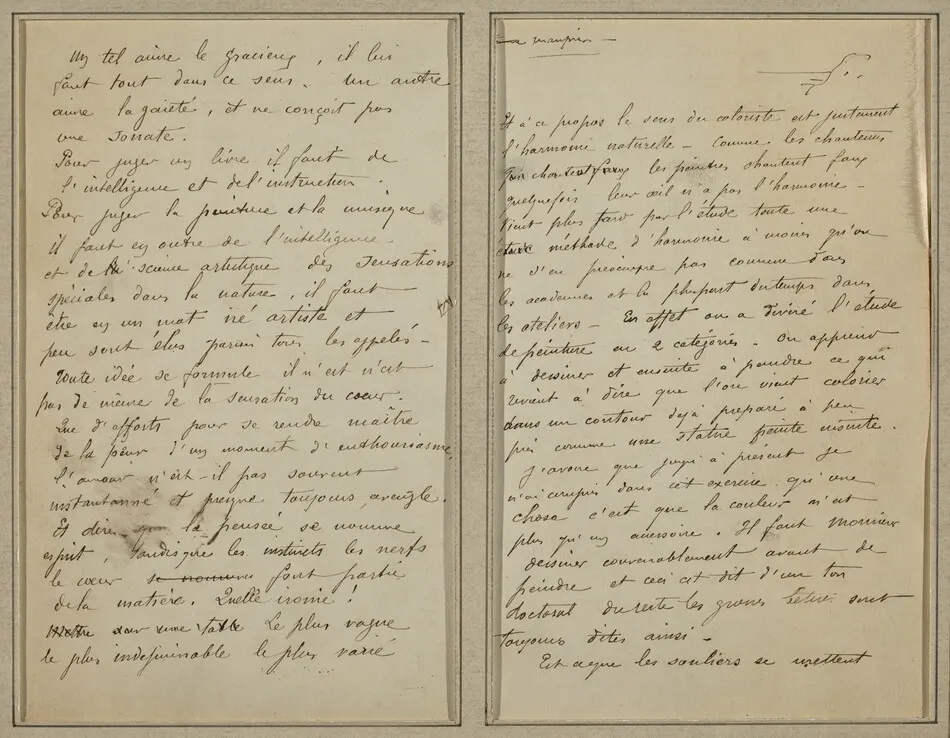 Un tel aime le gracieux, il lui
faut tout dans ce sens. Un autre
aime la gaieté, et ne conçoit pas
une sonate.
Pour juger un livre il faut de
l'intelligence et de l'instruction.
Pour juger la peinture et la musique
il faut en outre de l'intelligence
et de la science artistique des sensations
spéciales dans la nature, il faut
être en un mot né artiste et
peu sont élus parmi tous les appelés -
Toute idée se formule il n'est n'est
pas de même de la sensation du cœur.
Que d'efforts pour se rendre maître
de la peur d'un moment d'enthousiasme,
l'amour n'est-il pas souvent
instantanné et presque toujours aveugle.
Et dire que la pensée se nomme
esprit, tandisque les instincts les nerfs
le cœur se nomme font partie
de la matière. Quelle ironie !
Mettre sur une table Le plus vague
le plus indéfinissable le plus varié
A ce propos le sens du coloriste est justement
l'harmonie naturelle - Comme les chanteurs
chantent faux les peintres chantent faux
quelquefois leur œil n'a pas l'harmonie -
Vient plus tard par l'étude toute une
méthode d'harmonie à moins qu'on
ne s'en préocupe pas comme dans
les academies et la plupart du temps dans
les ateliers - En effet on a divisé l'étude
de peinture en 2 catégories. On apprend
à dessiner et ensuite à peindre ce qui
revient à dire que l'on vient colorier
dans un contour déjà préparé à peu
près comme une statue peinte ensuite.
J'avoue que jusqu'à présent je
n'ai compris dans cet exercice qu'une
chose c'est que la couleur n'est
plus qu'un accessoire. Il faut Monsieur
dessiner convenablement avant de
peindre et ceci est dit d'un ton
doctoral du reste les grosses bêtises sont
toujours dites ainsi -
Est ce que les souliers se mettent